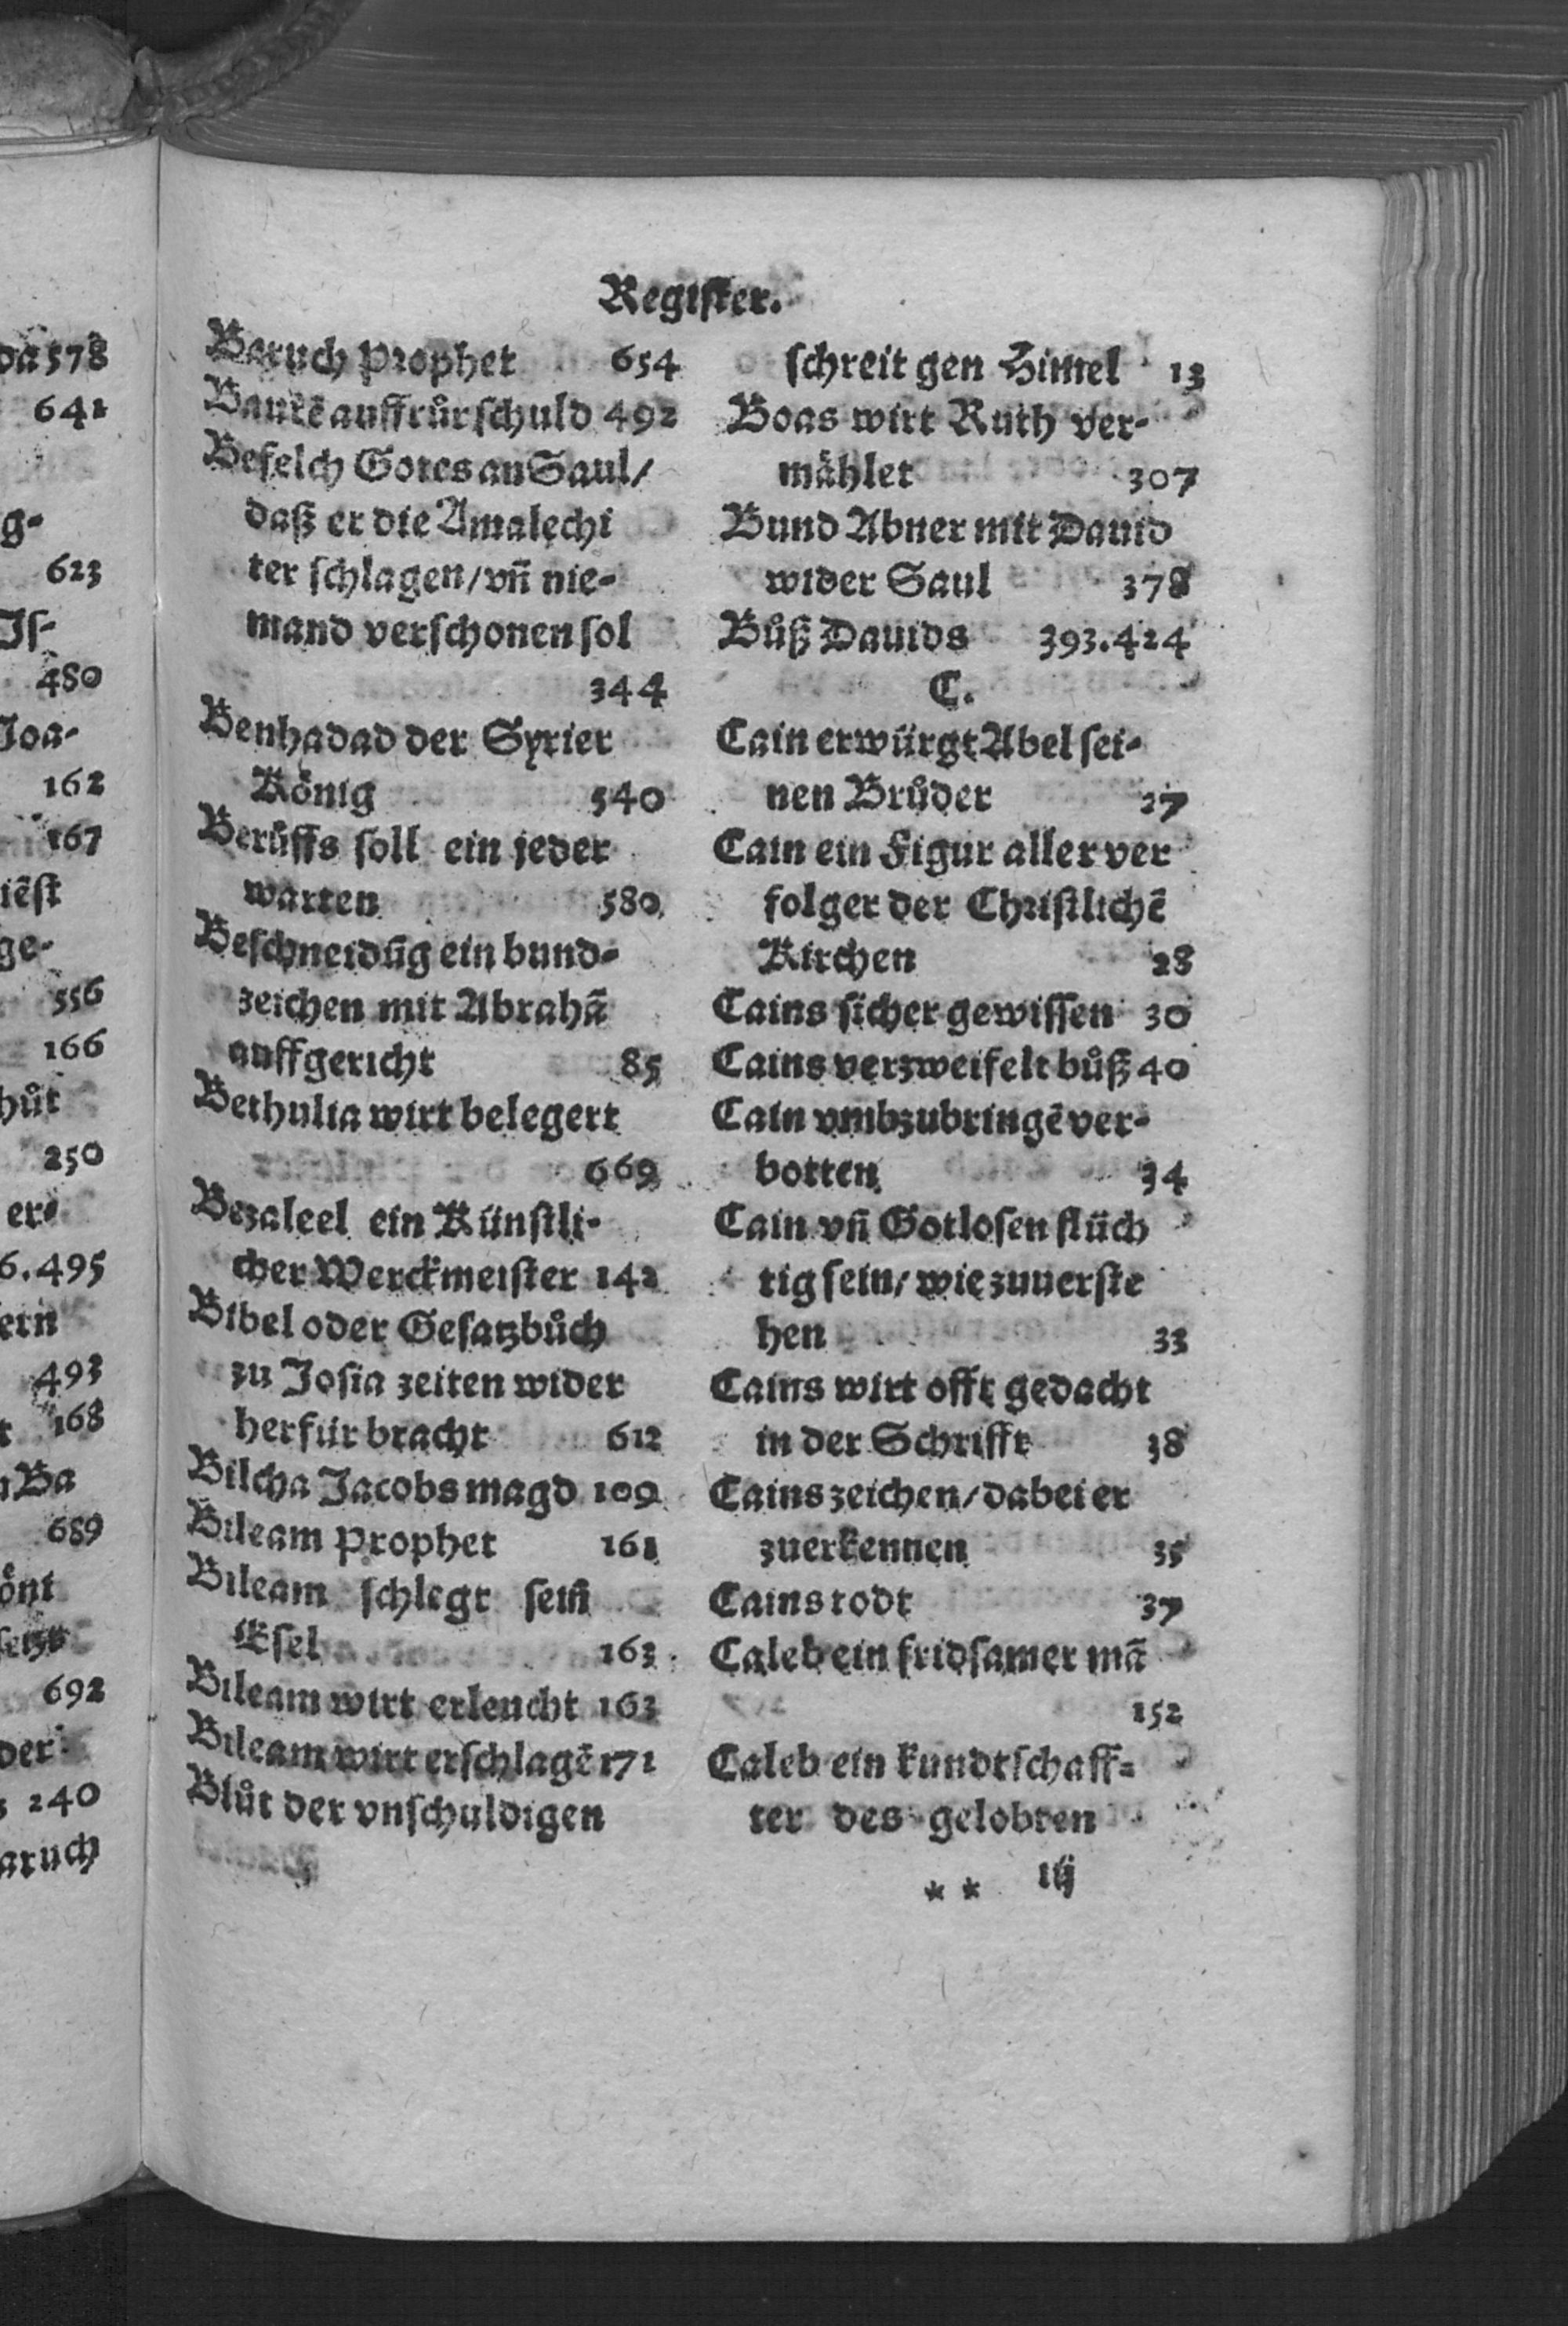 Register.
Baruch Prophet 654
Baurē auffrůr schuld 492
Befelch Gotes an Saul/
daß er die Amalechi
ter schlagen/vn̄ nie-
mand verschonen sol
344
Benhadad der Syrier
König 540
Berůffs soll ein jeder
warten 580
Beschneidūg ein bund-
zeichen mit Abrahā
auffgericht 85
Bethulia wirt belegert
669
Bezaleel ein Künstli-
cher Werckmeister 142
Bibel oder Gesatzbůch
zu Josia zeiten wider
herfür bracht 612
Bilcha Jacobs magd 109
Bileam Prophet 161
Bileam schlegt sein̄
Esel 163
Bileam wirt erleucht 163
Bileam wirt erschlagē 171
Blůt der vnschuldigen
schreit gen Himel 13
Boas wirt Ruth ver-
mählet 307
Bund Abner mit Dauid
wider Saul 378
Bůß Dauids 393.424
C.
Cain erwürgt Abel sei-
nen Brůder 27
Cain ein Figur aller ver
folger der Christlichē
Kirchen 28
Cains sicher gewissen 30
Cains verzweifelt bůß 40
Cain vmbzubringē ver-
botten 34
Cain vn̄ Gotlosen flüch
tig sein/wie zuuerste
hen 33
Cains wirt offt gedacht
in der Schrifft 38
Cains zeichen/dabei er
zuerkennen 35
Cains todt 37
Caleb ein fridsamer mā
152
Caleb ein kundtschaff-
ter des gelobten
** iij
da 578
641
g-
623
Js-
480
Joa-
162
167
iēst
ge-
556
166
hůt
250
er-
6.495
ern
493
168
Ba
689
önt
692
der
240
aruch